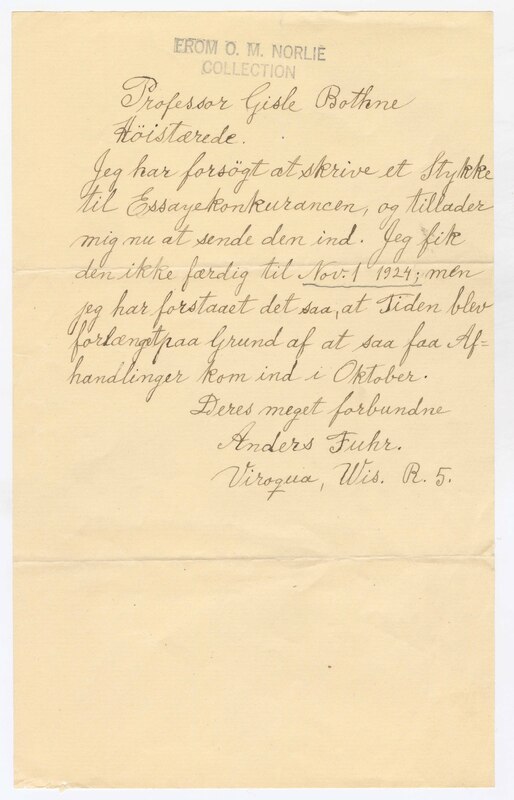 FROM O. M. NORLIE
COLLECTION
Professor Gisle Bothne
Höistærede.
Jeg har forsögt at skrive et Stykke
til Essayekonkurancen, og tillader
mig nu at sende den ind. Jeg fik
den ikke færdig til Nov. 1 1924; men
jeg har forstaaet det saa, at Tiden blev
forlænget paa Grund af at saa faa Af=
handlinger kom ind i Oktober.
Deres meget forbundne
Anders Fuhr.
Viroqua, Wis. R. 5.